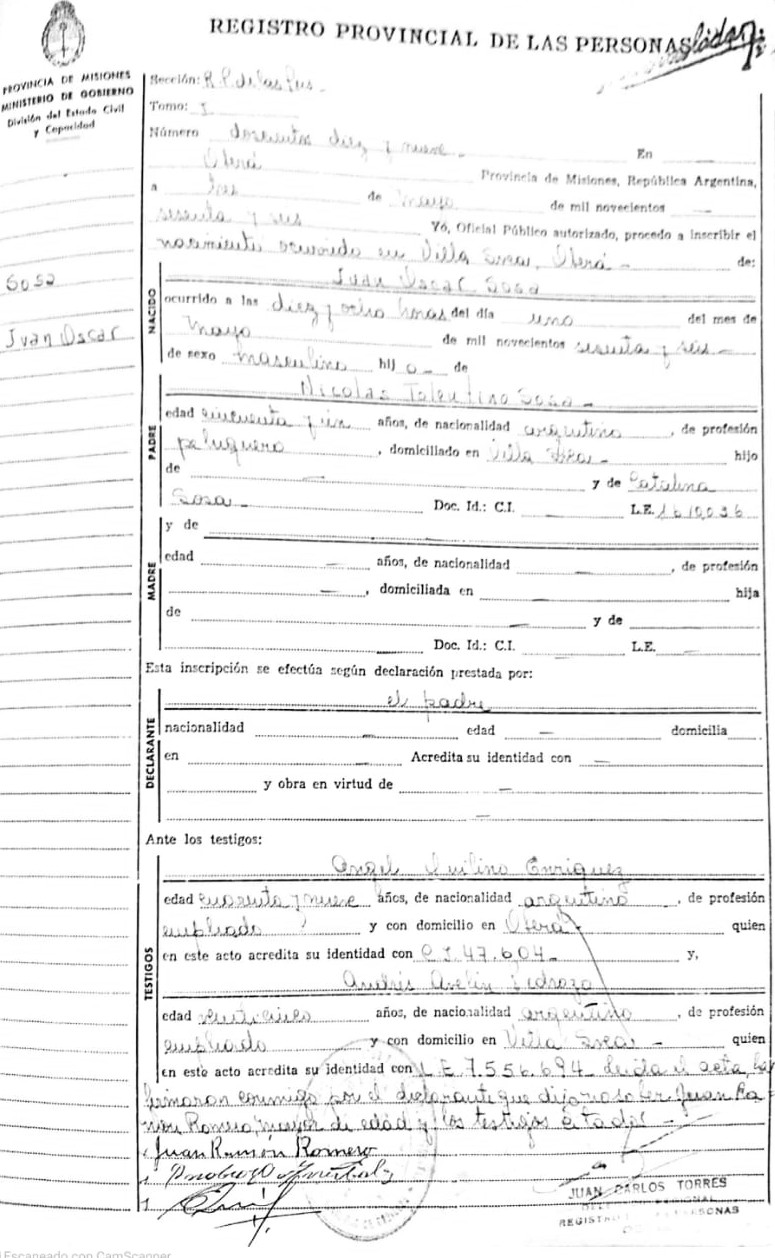 REGISTRO PROVINCIAL DE LAS PERSONAS
PROVINCIA DE MISIONES
MINISTERIO DE GOBIERNO
División del Estado Civil
y Capacidad
Sosa
Juan Oscar
Sección: R.P. de las Pers -
Tomo: I
Número doscientos diez y nueve - En
Oberá Provincia de Misiones, República Argentina,
a tres de mayo de mil novecientos —
sesenta y seis Yó, Oficial Público autorizado, procedo a inscribir el
nacimiento ocurrido en Villa Svea, Oberá - de:
NACIDO
Juan Oscar Sosa
ocurrido a las diez y ocho horas del día uno del mes de
Mayo de mil novecientos sesenta y seis -
de sexo masculino hij o - de
PADRE
Nicolás Tolentino Sosa -
edad cincuenta y un años, de nacionalidad argentino, de profesión
peluquero, domiciliado en Villa Svea - hijo
de — y de Catalina
Sosa - Doc. Id.: C.I. — L.E. 1610.036
MADRE
y de
edad — años, de nacionalidad —, de profesión
—, domiciliada en — hija
de — y de
Doc. Id.: C.I. — L.E. —
Esta inscripción se efectúa según declaración prestada por:
DECLARANTE
el padre
nacionalidad — edad — domicilia
en — Acredita su identidad con —
y obra en virtud de —
—
Ante los testigos:
TESTIGOS
Angel Enriquez
edad cuarenta y nueve años, de nacionalidad argentino, de profesión
empleado y con domicilio en Oberá - quien
en este acto acredita su identidad con C I 47.604 - y,
Andrés Pedrozo
edad veinticinco años, de nacionalidad argentino, de profesión
empleado y con domicilio en Villa Svea - quien
en este acto acredita su identidad con L E 7.556.694 - Leída el acta, la
firmaron conmigo por el declarante que dijo no saber Juan Ra-
món Romero, mayor de edad y los testigos citados -
Juan Ramón Romero
JUAN CARLOS TORRES
REGISTRO PERSONAS
Escaneado con CamScanner